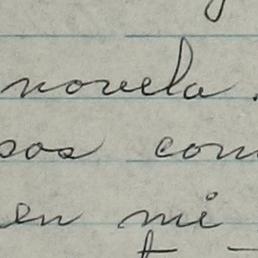 novela.
sos com
en mi